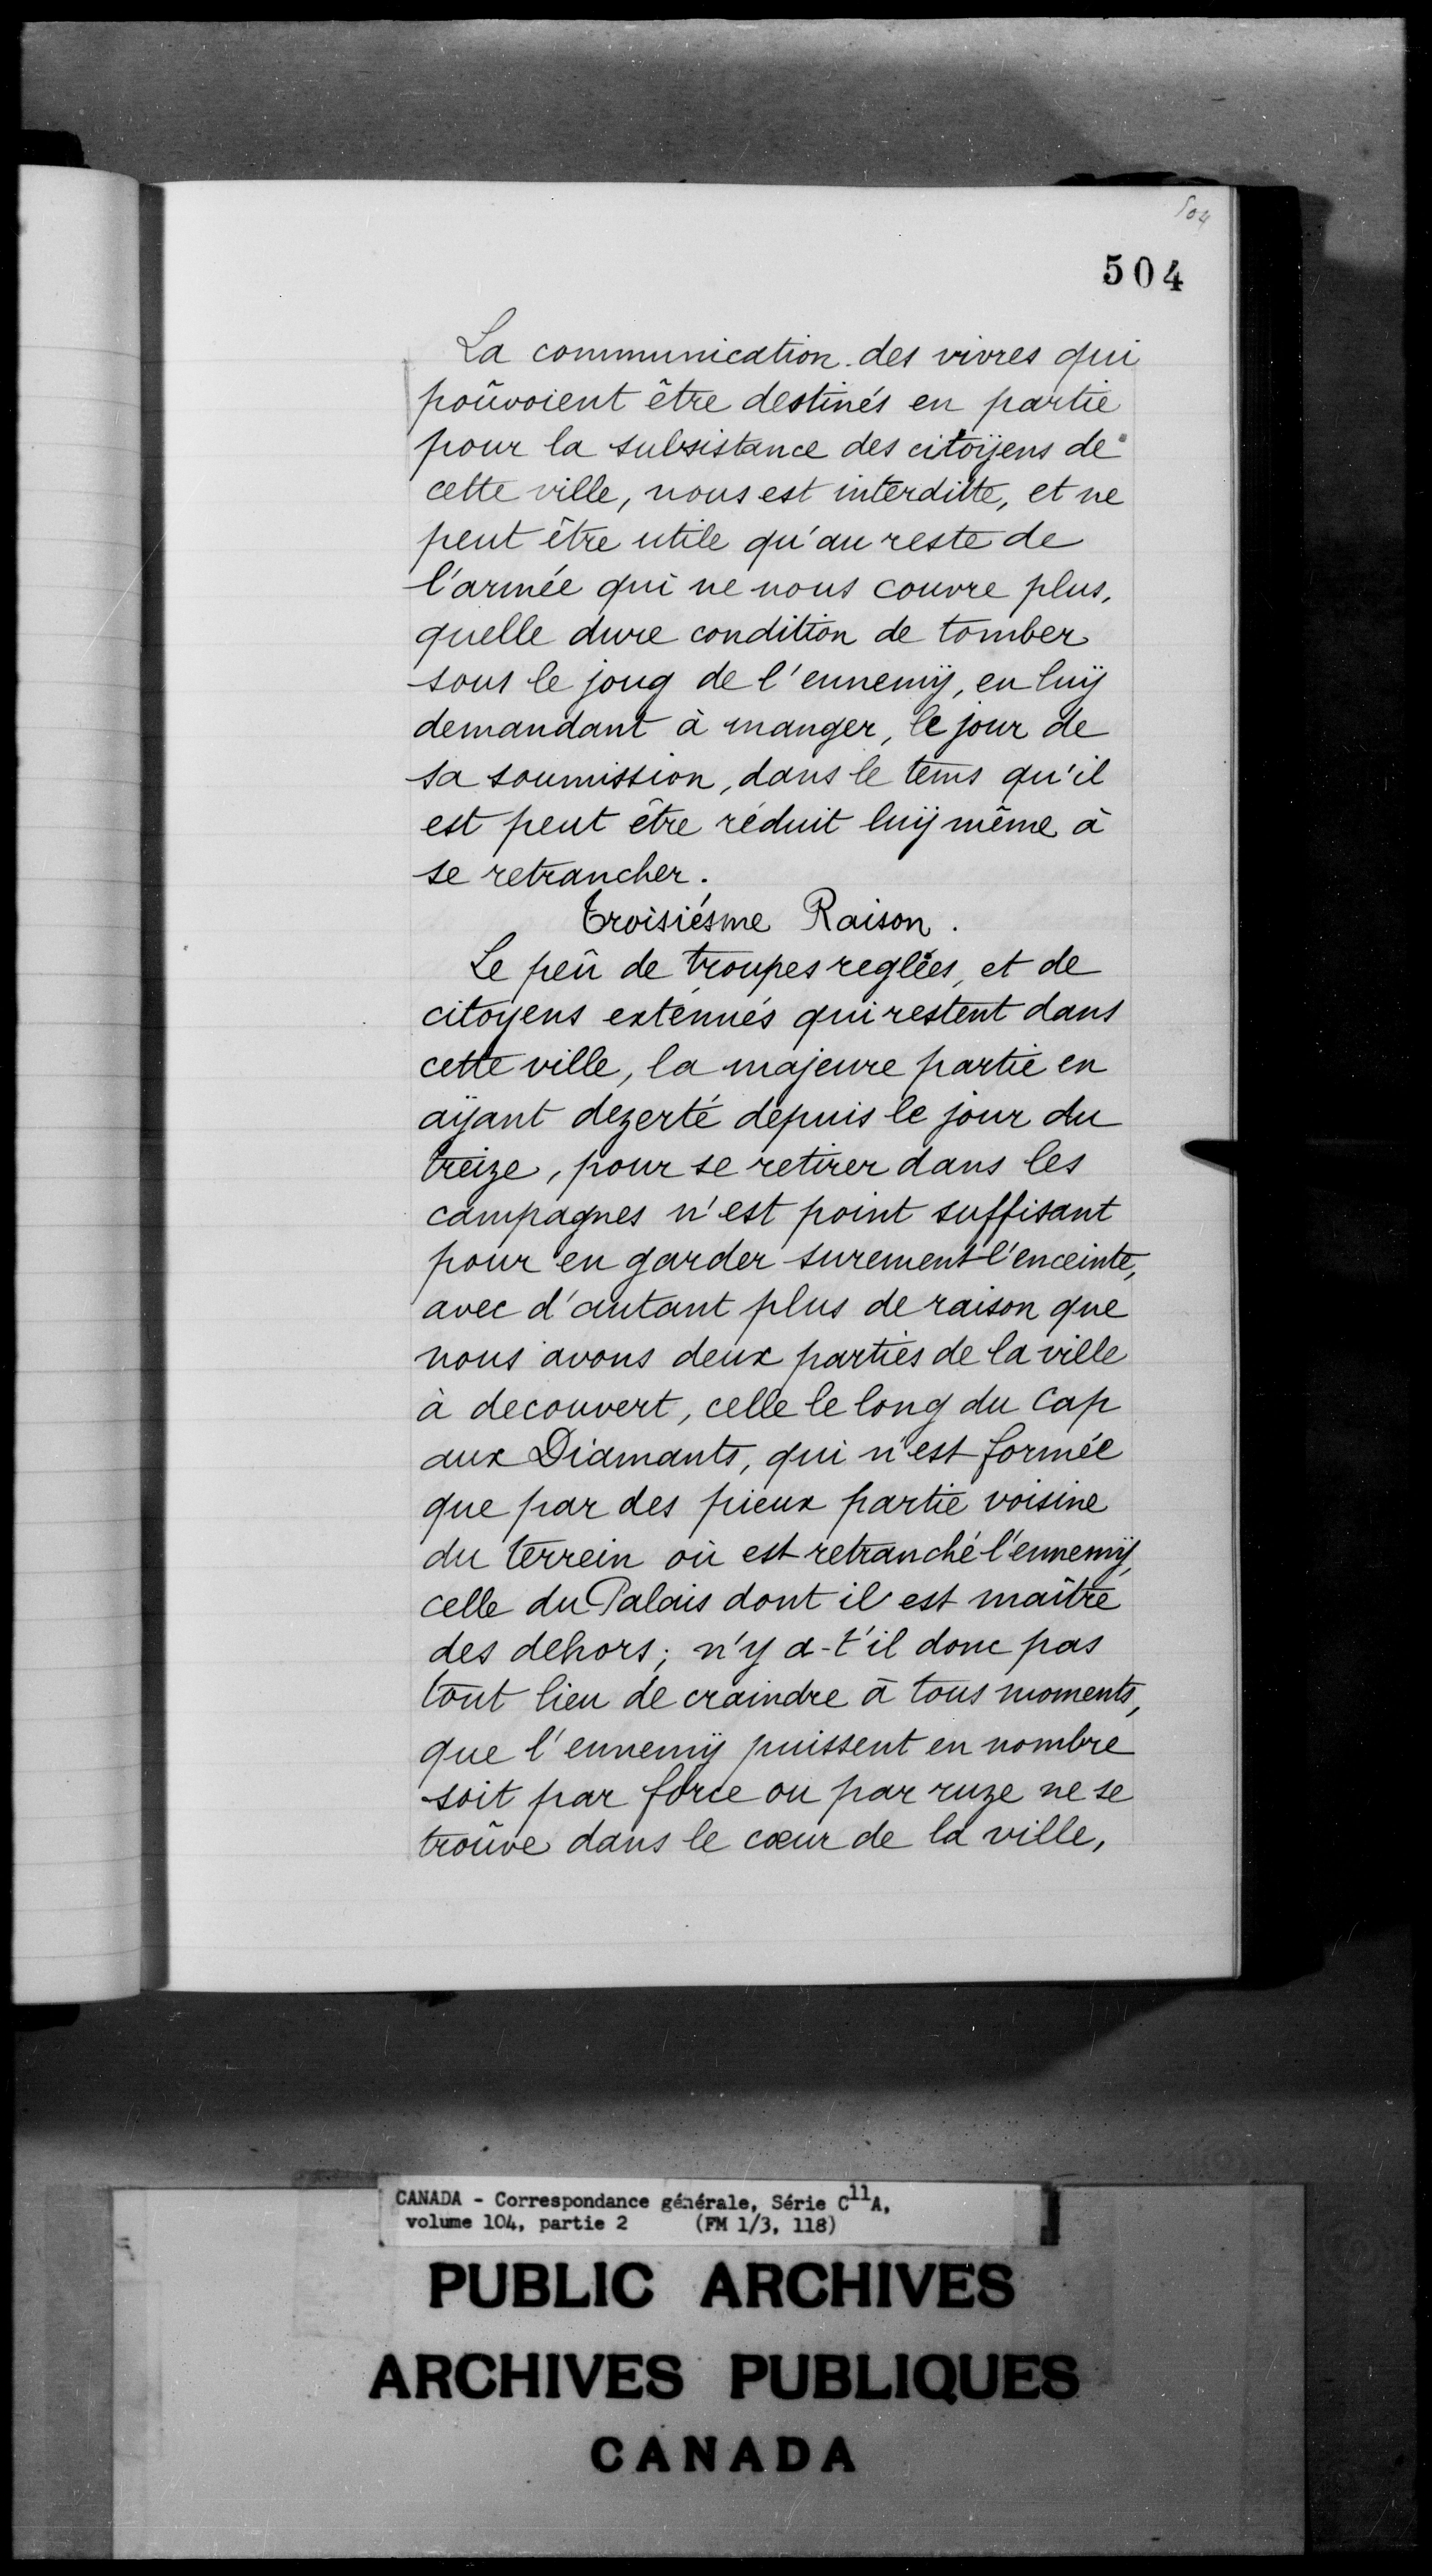 504
504
La communication des vivres qui
poûvoient être destinés en partie
pour la subsistance des citoÿens de
cette ville, nous est interditte, et ne
peut être utile qu'au reste de
l'armée qui ne nous couvre plus,
quelle dure condition de tomber
sous le joug de l'ennemÿ, en luÿ
demandant à manger, le jour de
sa soumission, dans le tems qu'il
est peut être réduit luÿ même à
se retrancher.
Troisiésme Raison.
Le peû de troupes reglées, et de
citoyens exténués qui restent dans
cette ville, la majeure partie en
aÿant dezerté depuis le jour du
treize, pour se retirer dans les
campagnes n'est point suffisant
pour en garder surement l'enceinte,
avec d'autant plus de raison que
nous avons deux parties de la ville
à decouvert, celle le long du Cap
aux Diamants, qui n'est formée
que par des pieux partie voisine
du terrein où est retranché l'ennemÿ,
celle du Palais dont il est maître
des dehors; n'y a-t'il donc pas
tout lieu de craindre à tous moments,
que l'ennemÿ puissent en nombre
soit par force ou par ruze ne se
troûve dans le cœur de la ville,
CANADA - Correspondance générale, Série C11A,
volume 104, partie 2 (FM 1/3, 118)
PUBLIC ARCHIVES
ARCHIVES PUBLIQUES
CANADA